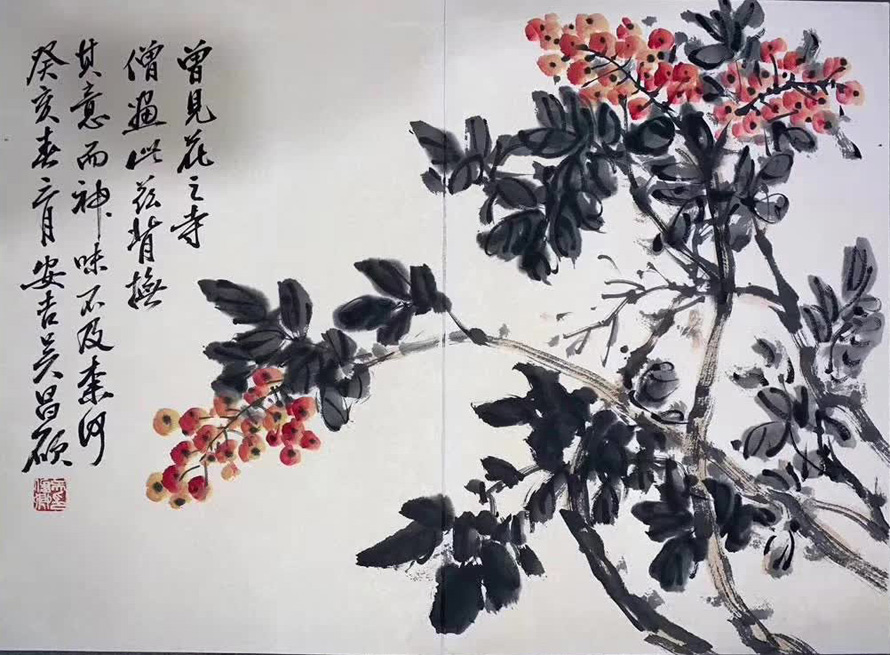 曾見花之寺
僧畫此茲背撫
其意而神味不及奈何
癸亥春二月安吉吳昌碩